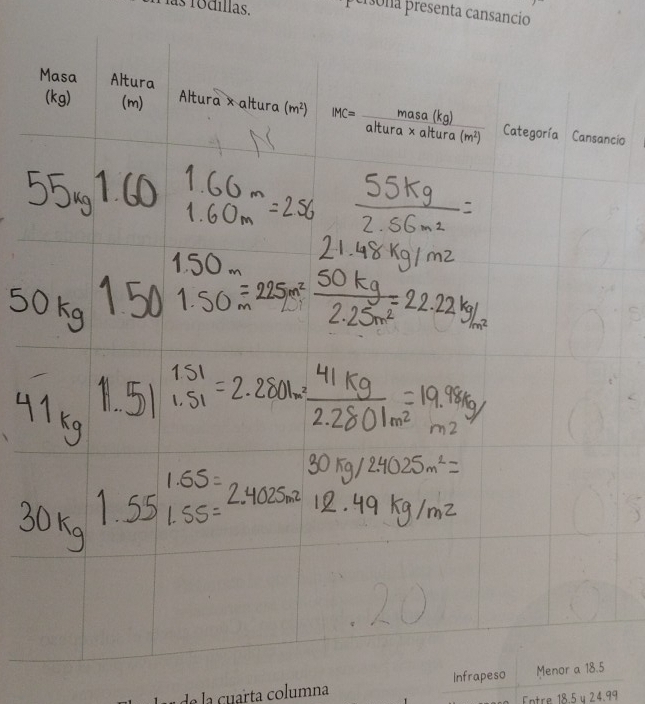 las rodillas.
persona presenta cansancio
Masa (kg) Altura (m) Altura x altura (m²) IMC= masa (kg) / altura x altura (m²) Categoría Cansancio
55kg 1.60 1.60 m 1.60m =256 55kg / 2.56m² =
21.48 Kg/m2
50kg 1.50 1.50 m 1.50 m = 225m² 50 kg / 2.25m² = 22.22 kg/m²
41kg 1.51 151 1.51 = 2.2801m² 41 Kg / 2.2801m² = 19.98kg/m2
30kg 1.55 1.55= 1.55= 2.4025m2 30 Kg/24025m²=
12.49 Kg/m2
.20
de la cuarta columna
Infrapeso Menor a 18.5
Entre 18.5 y 24.99